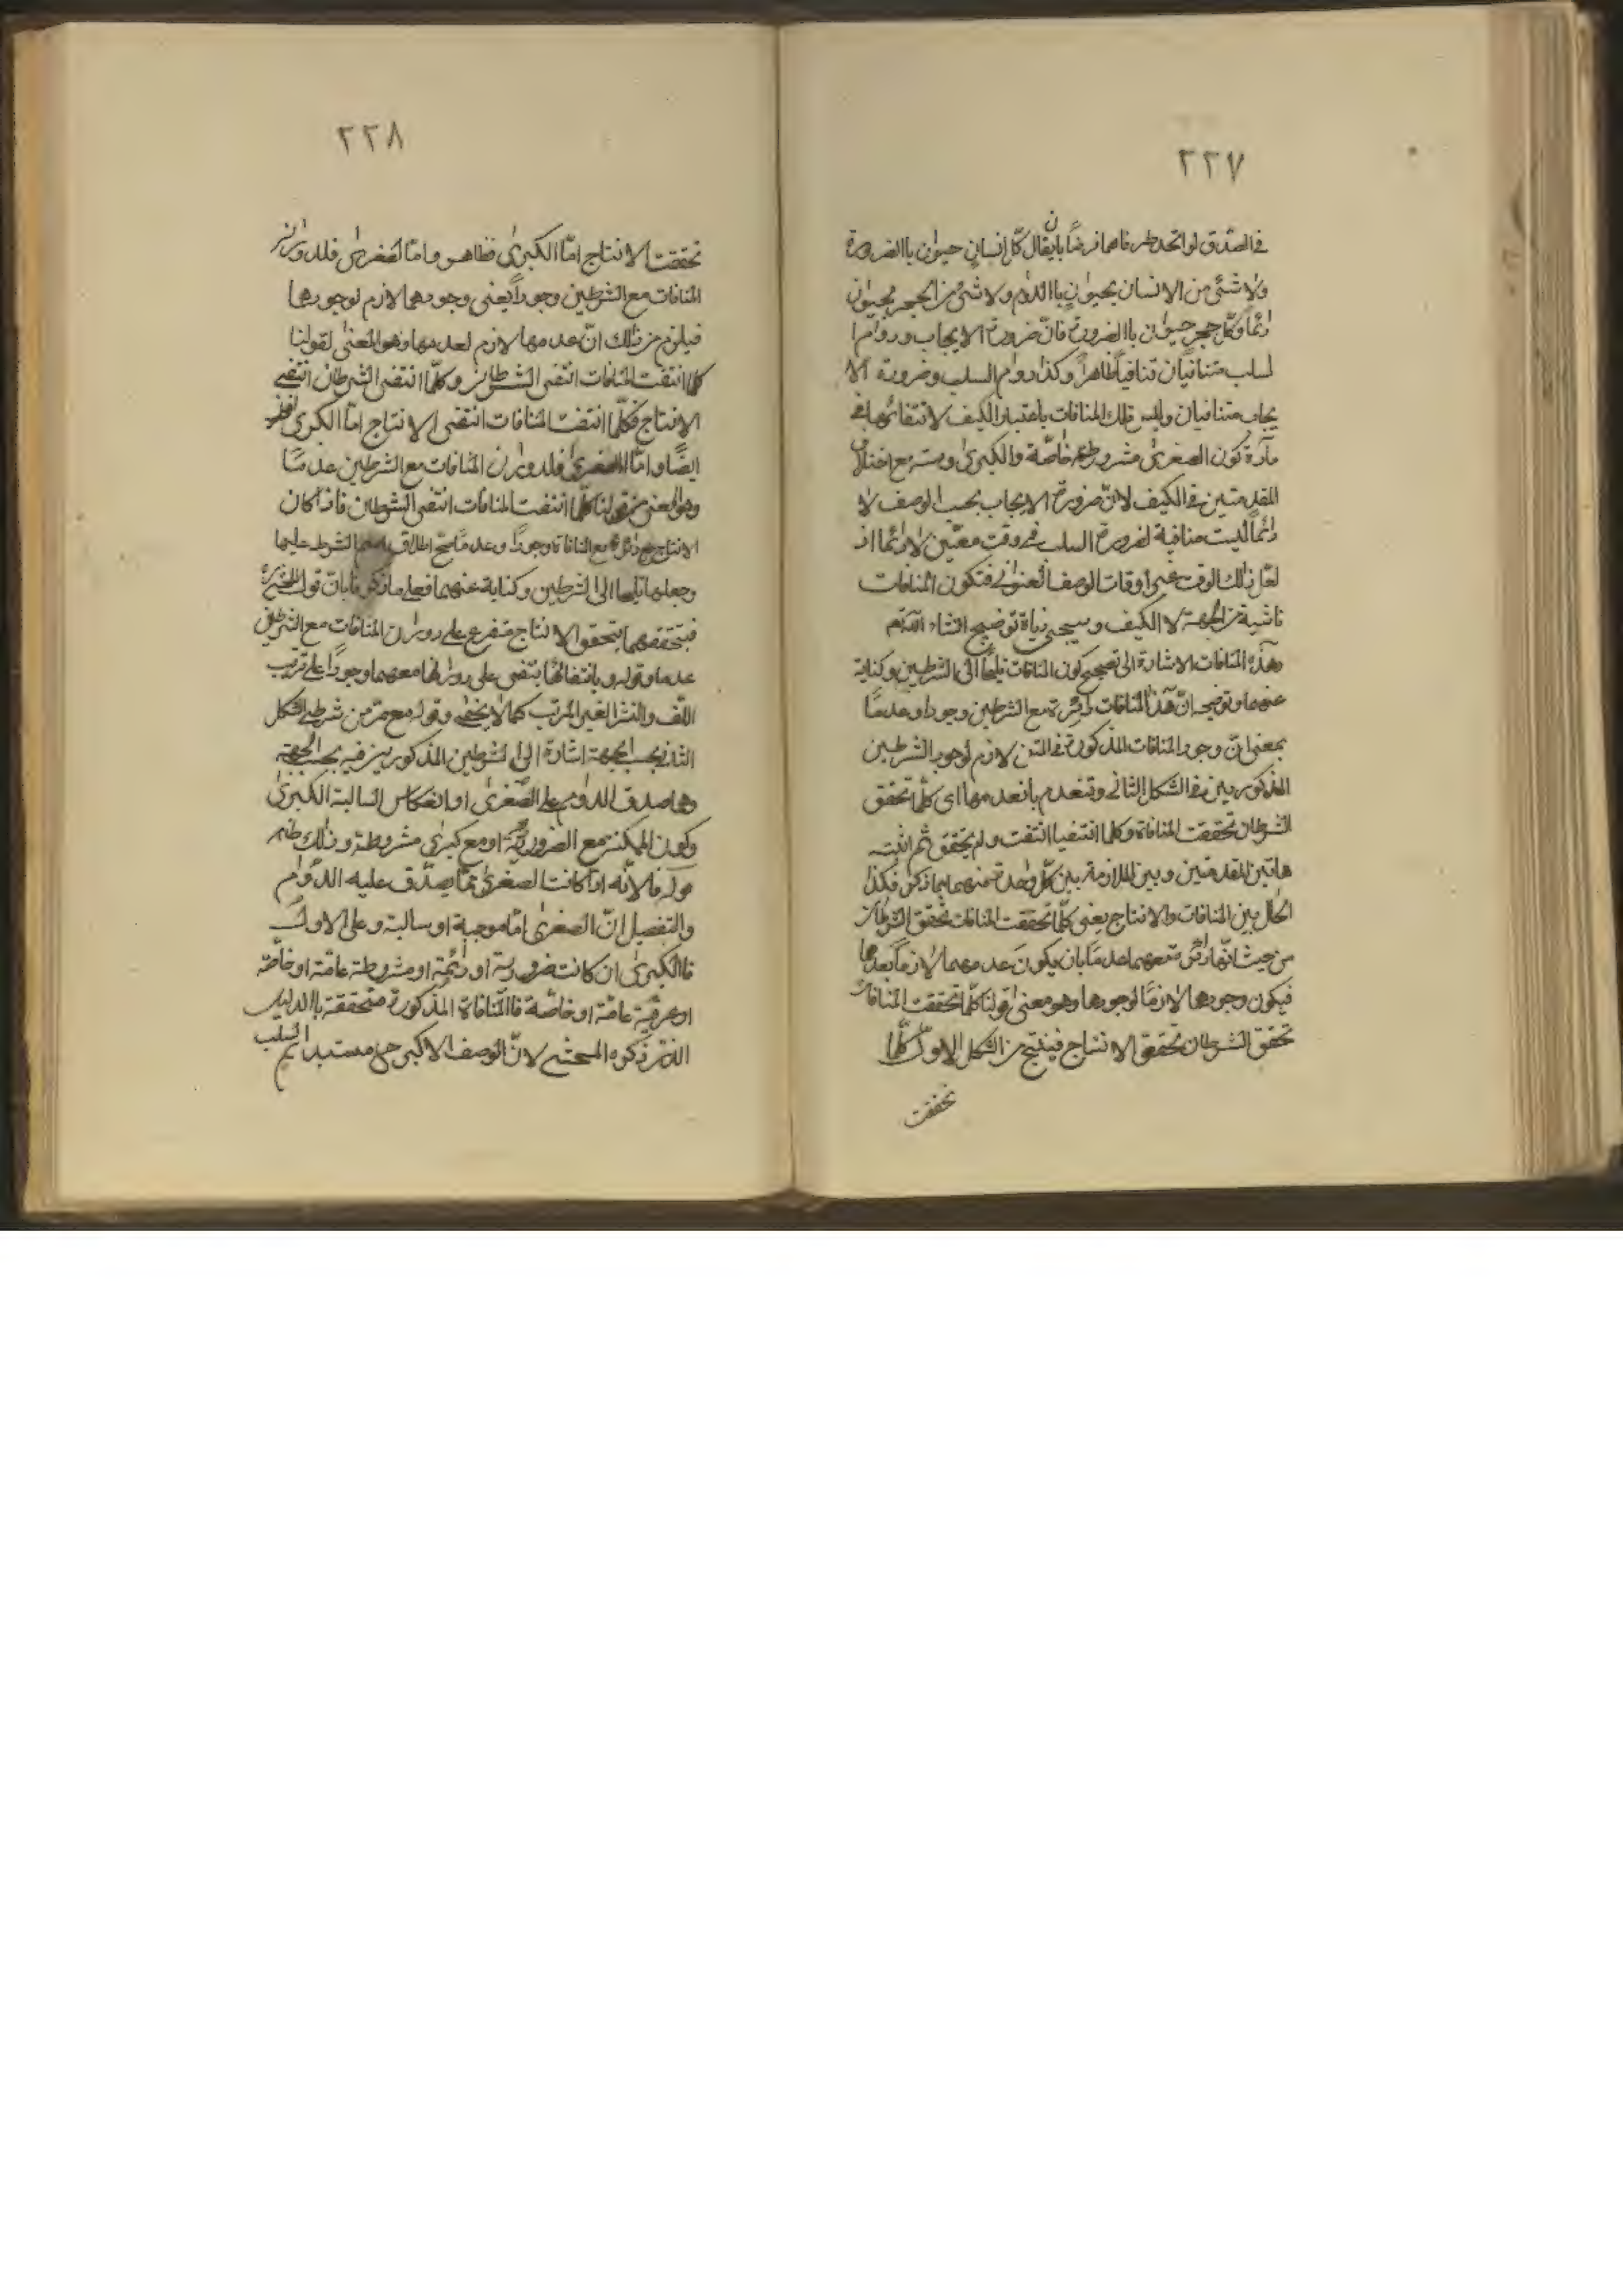 ٢٢٧
في الصدق لو اتحد طرفاهما فرضًا بان يقال كل انسان حيوان باالضرورة
ولا شئ من الانسان بحيوان باالدوام ولا شئ من الحجر بحيوان
دائمًا وكل حجر حيوان باالضرورة فان ضرورة الايجاب ودوام ا
لسلب متنافيان تنافيًا ظاهرًا وكذا دوام السلب وضرورة الا
يجاب متنافيان وليس تلك المنافات باعتبار الكيف لانتفائها في
مادة كون الصغرى مشروطة خاصّة والكبرى وقتية مع اختلاف
المقدمتين في الكيف لانّ ضرورة الايجاب بحسب الوصف لا
دائمًا ليست منافية لضرورة السلب في وقت معيّن لا دائما اذ
لعل ذلك الوقت غير اوقات الوصف العنواني فتكون المنافات
ناشية من الجهة لا الكيف وسيجئ زيادة توضيح انشاء الله تم
وهذه المنافات الاشارة الى تصحيح كون المنافات تلميحًا الى الشرطين وكناية
عنهما وتوضيحه انّ هذه المنافات دائرة مع الشرطين وجودا وعدمًا
بمعنى ان وجود المنافات المذكورة في المتن لازم لوجود الشرطين
المذكورين في الشكل الثاني وتنعدم بانعدامها اى كلما تحقق
الشرطان تحققت المنافاة وكلما انتفيا انتفت ولم يتحقق ثم اثبت
هاتين المقدمتين وبين الملازمة بين كل واحدة منهما بما ذكر فكذا
الحال بين المنافات والانتاج يعنى كلّما تحققت المنافات تحقق الشرطان
من حيث انّها دائرة معهما عدمًا بان يكون عدمهما لازمًا بعدمها
فيكون وجودها لازمًا لوجودها وهو معنى قولنا كلّما تحققت المنافات
تحقق الشرطان تحقق الانتاج فينتج من الشكل الاول كلّما
تحققت
٢٢٨
تحققت الانتاج امّا الكبرى فظاهر وامّا الصغرى فلدوران
المنافات مع الشرطين وجوداً يعنى وجودهما لازم لوجودها
فيلزم من ذلك انّ عدمها لازم لعدمها وهو المعنى لقولنا
كلما انتفت المنافات انتفى الشرطان وكلّما انتفى الشرطان انتفى
الانتاج فكلّما انتفت المنافات انتفى الانتاج امّا الكبرى فظاهر
ايضًا وامّا الصغرى فلدوران المنافات مع الشرطين عدمًا
وهو المعنى من قولنا كلّما انتفت المنافات انتفى الشرطان فاذا كان
الانتاج دائرة مع المنافاة وجودًا وعدمًا صح اطلاق اسم الشرط عليها
وجعلها تلميحا الى الشرطين وكناية عنهما فعلم ما ذكرنا بانّ قول المحشى
فبتحققهما يتحقق الانتاج متفرع على دوران المنافات مع الشرطين
عدما وقوله وبانتفائها ينتفى على دورانها معهما وجودًا على ترتيب
اللف والنشر الغير المرتب كما لا يخفى وقوله مع مر من شرطى الشكل
الثاني بحسب الجهة اشارة الى الشرطين المذكورين فيه بحسب الجهة
وهما صدق الدوام على الصّغرى او انعكاس السالبة الكبرى
وكون الممكنة مع الضرورية او مع كبرى مشروطة وذلك
قوله فلأنّه اذا كانت الصغرى ممّا يصدّق عليه الدّوام
والتفصيل انّ الصغرى امّا موجبة او سالبة وعلى الاول
فاالكبرى ان كانت ضرورية او دائمة او مشروطة عامّة او خاصّة
او عرفيّة عامّة او خاصّة فاالمنافاة المذكورة متحققة باالدليل
الذى ذكره المحشى لانّ الوصف الاكبر ح مستبد السلب